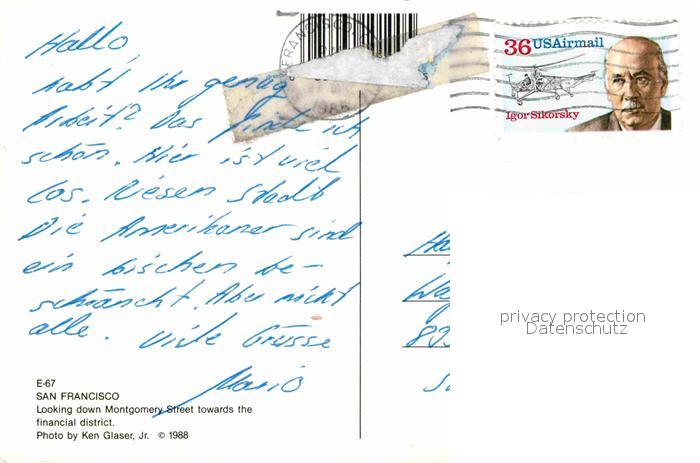 Hallo,
habt Ihr genug
Arbeit? Das finde ich
schön. Hier ist viel
los. Riesen Stadt
Die Amerikaner sind
ein bischen be-
schränckt. Aber nicht
alle. Viele Grüsse
Mario
E-67
SAN FRANCISCO
Looking down Montgomery Street towards the
financial district.
Photo by Ken Glaser, Jr. © 1988
FRANCISCO,
36 USAirmail
Igor Sikorsky
privacy protection
Datenschutz